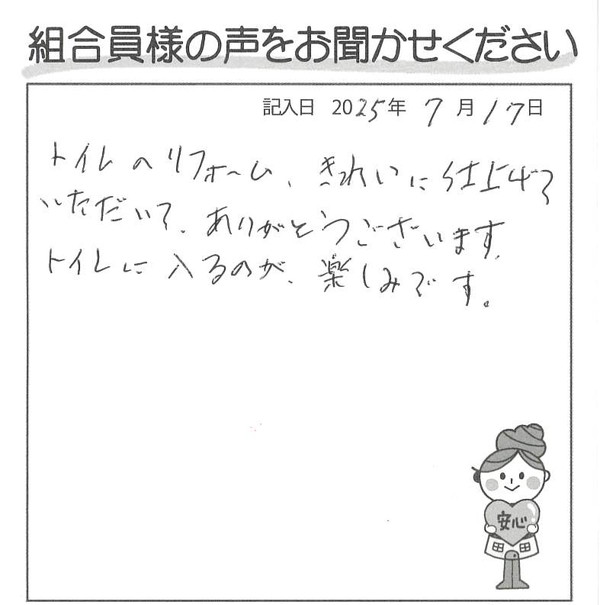 組合員様の声をお聞かせください
記入日 2025年 7月17日
トイレのリフォーム、きれいに仕上げて
いただいて、ありがとうございます。
トイレに入るのが、楽しみです。
安心